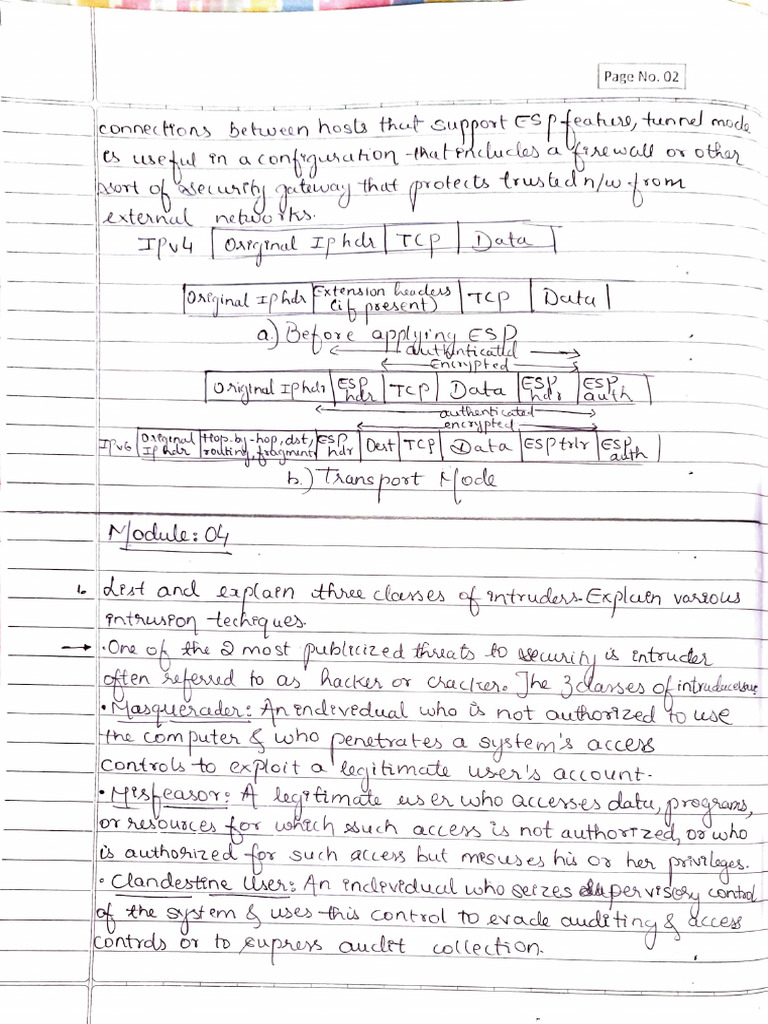 Page No. 02
connections between hosts that support ESP feature, tunnel mode
is useful in a configuration that includes a firewall or other
sort of security gateway that protects trusted n/w from
external networks.
IPv4 Original Ip hdr TCP Data
Original Ip hdr Extension headers (if present) TCP Data
a.) Before applying ESP
authenticated
encrypted
Original Ip hdr ESP hdr TCP Data ESP hdr ESP auth
authenticated
encrypted
IPv6 Original Ip hdr Hop-by-hop, dst, routing, fragment ESP hdr Dest TCP Data ESP trlr ESP auth
b.) Transport Mode
Module: 04
1. List and explain three classes of intruders. Explain various
intrusion techiques.
→ • One of the 2 most publicized threats to security is intruder
often referred to as hacker or cracker. The 3 classes of
• Masquerader: An individual who is not authorized to use
the computer & who penetrates a system's access
controls to exploit a legitimate user's account.
• Misfeasor: A legitimate user who accesses data, programs,
or resources for which such access is not authorized, or who
is authorized for such access but mesuses his or her privileges.
• Clandestine User: An individual who seizes supervisory control
of the system & uses this control to evade auditing & access
controls or to supress audit collection.